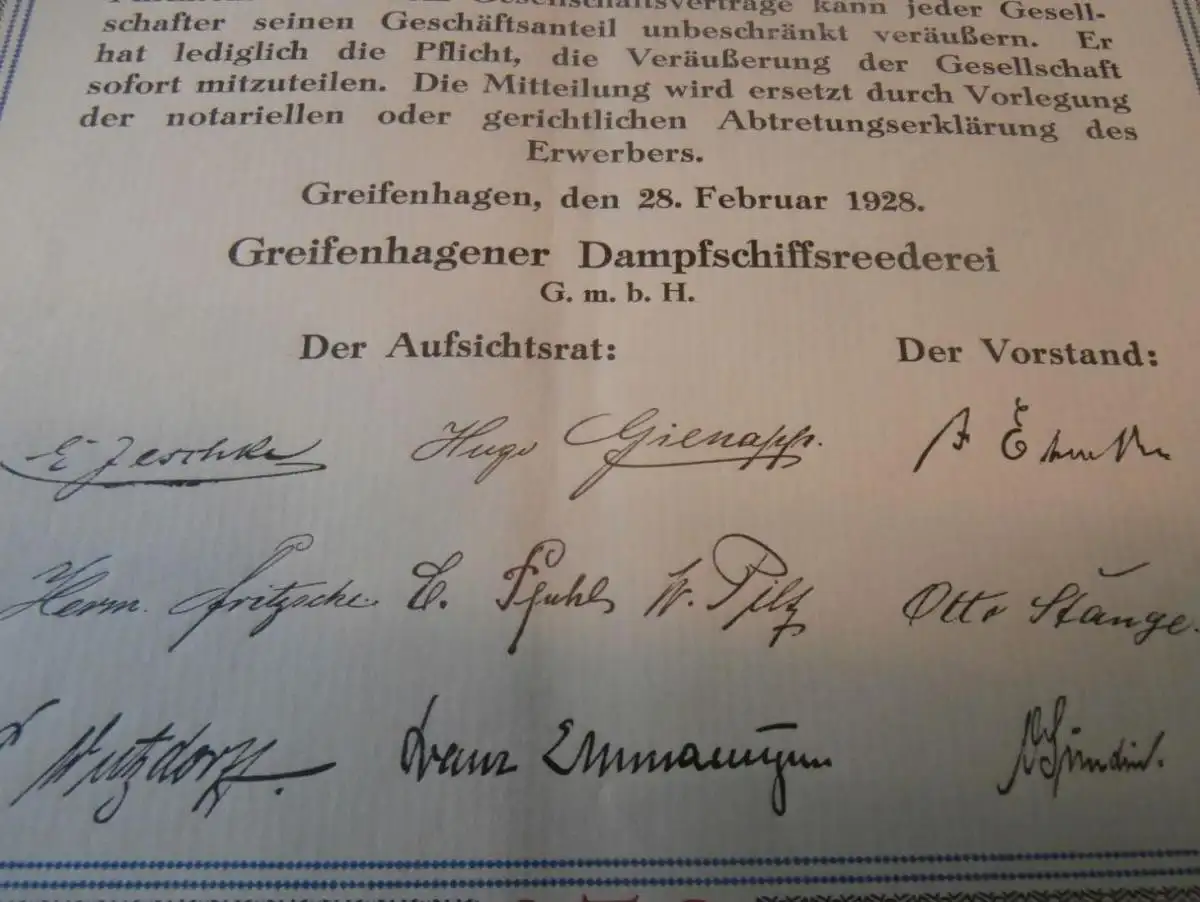 Gesellschaftsvertrage kann jeder Gesell-
schafter seinen Geschäftsanteil unbeschränkt veräußern. Er
hat lediglich die Pflicht, die Veräußerung der Gesellschaft
sofort mitzuteilen. Die Mitteilung wird ersetzt durch Vorlegung
der notariellen oder gerichtlichen Abtretungserklärung des
Erwerbers.
Greifenhagen, den 28. Februar 1928.
Greifenhagener Dampfschiffsreederei
G. m. b. H.
Der Aufsichtsrat: Der Vorstand:
E Jeschke Hugo Gienapp.
Herm. Fritzsche. E. Pfuhl W. Pilz Otto Stange.
Witzdorff. Franz